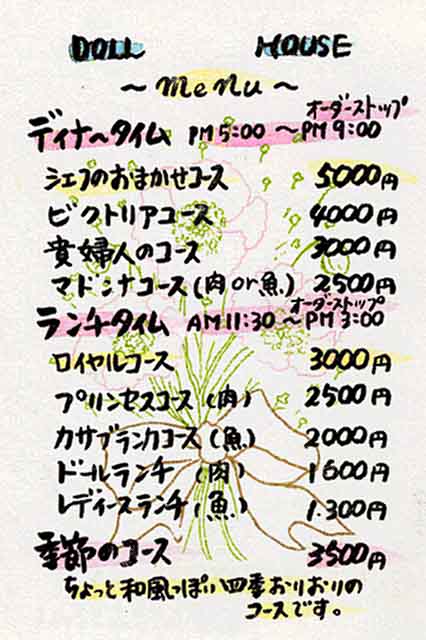 DOLL HOUSE
～ MeNu ～
オーダーストップ
ディナ～タイム PM 5:00 ～PM 9:00
シェフのおまかせコース 5000円
ビクトリアコース 4000円
貴婦人のコース 3000円
マドンナコース (肉 or 魚) 2500円
オーダーストップ
ランチタイム AM 11:30 ～PM 3:00
ロイヤルコース 3000円
プリンセスコース (肉) 2500円
カサブランカコース (魚) 2000円
ドールランチ (肉) 1600円
レディースランチ (魚) 1.300円
季節のコース 3500円
ちょっと和風っぽい四季おりおりの
コースです。